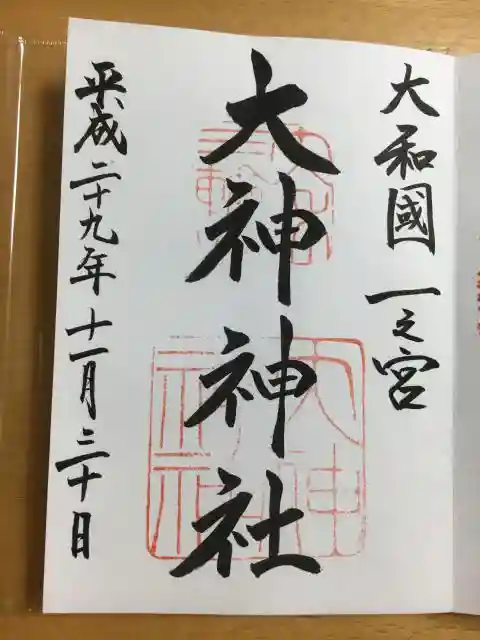 大和國一之宮
大神神社
平成二十九年十一月三十日